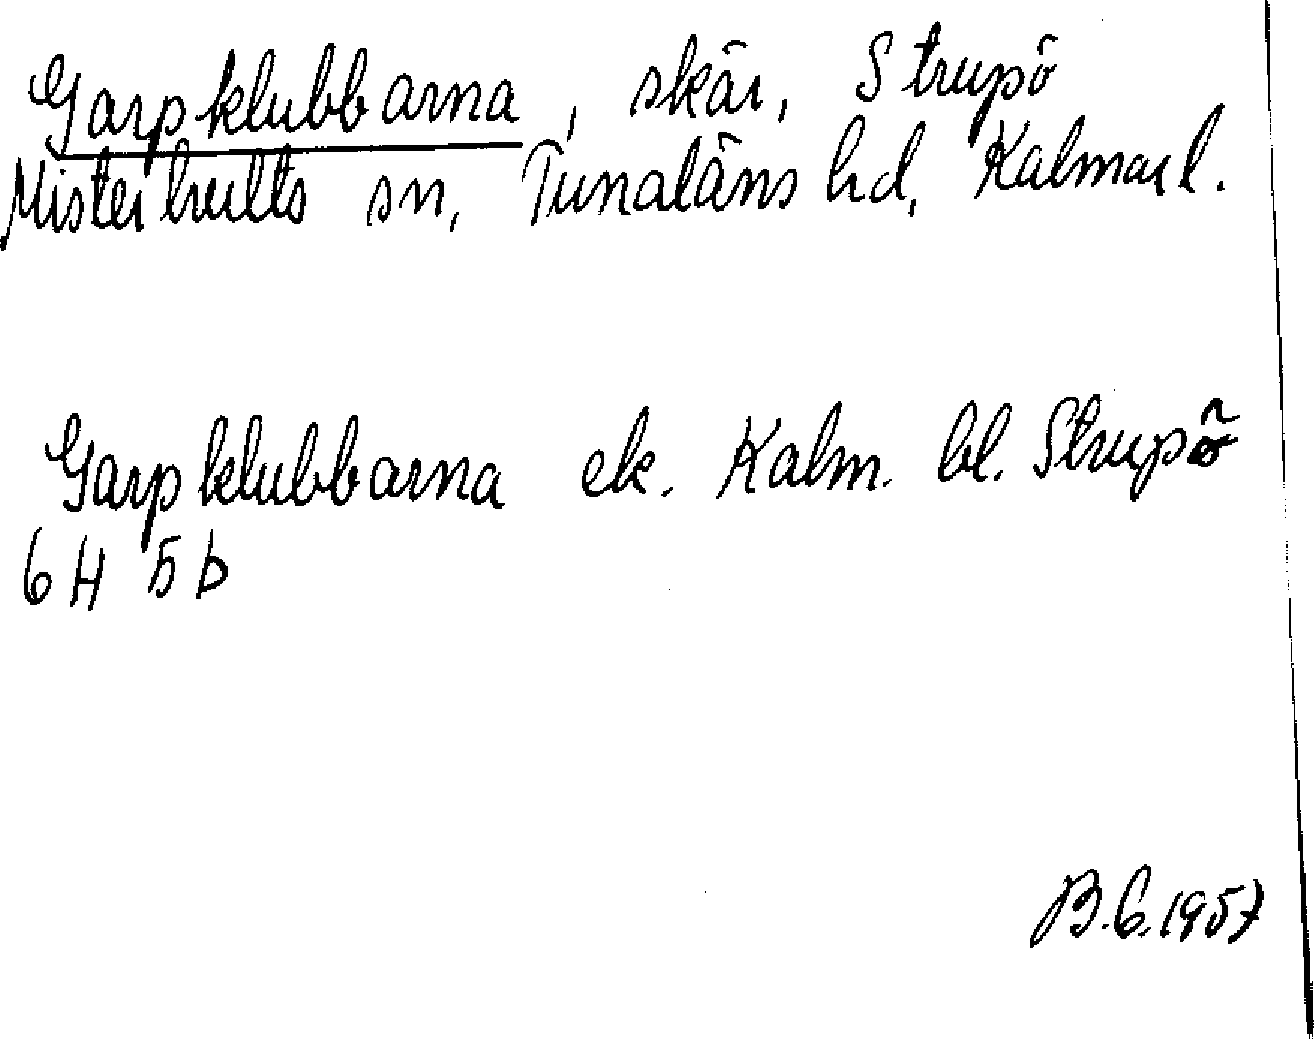 Garpklubbarna, skär, Strupö
Misterhults sn, Tunaläns hd, Kalmar l.
Garpklubbarna ek. Kalm. bl. Strupö
6 H 5 b
B.G.1957